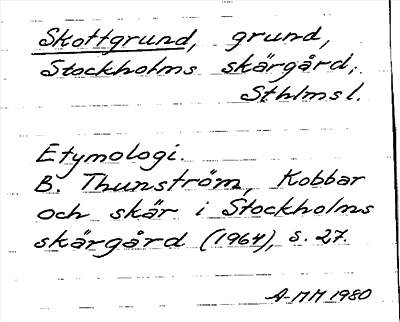 Skottgrund, grund,
Stockholms skärgård,
Sthlms l.
Etymologi.
B. Thunström, Kobbar
och skär i Stockholms
skärgård (1964), s. 27.
A-MM 1980